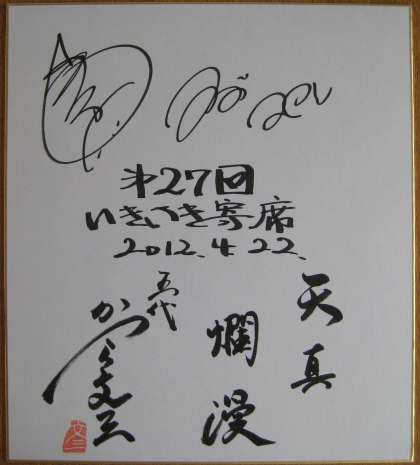 第27回
いきいき寄席
2012.4.22.
天真
爛漫
五代
かつら文三